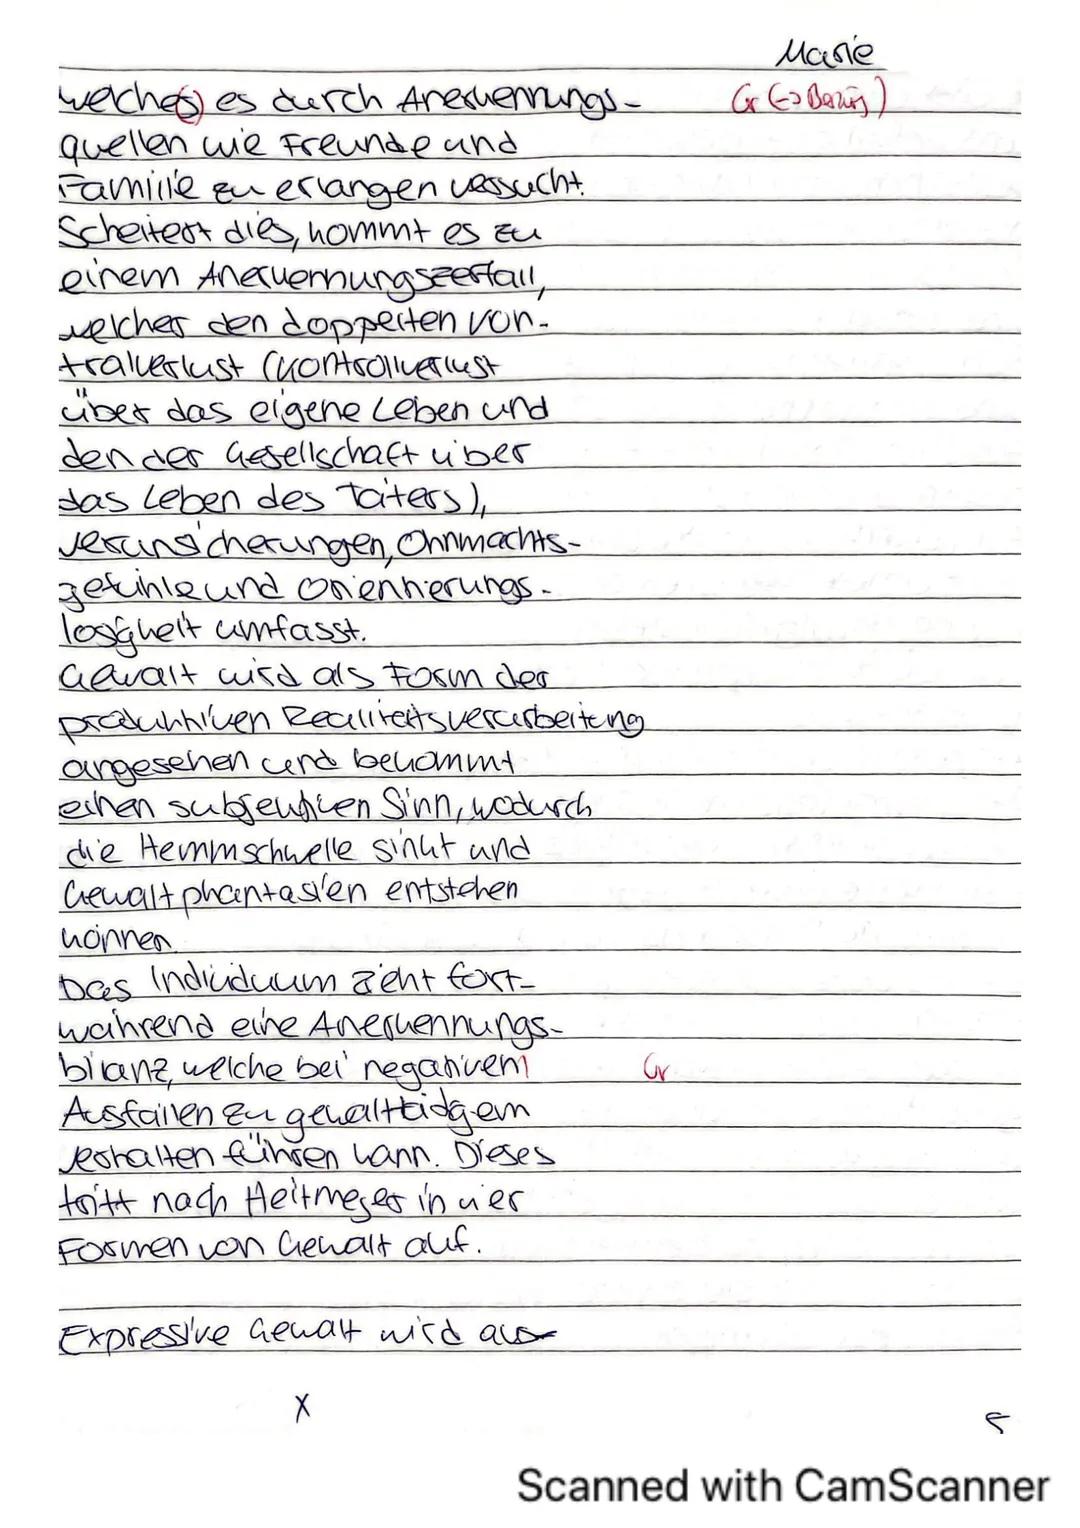 Marie
welches es durch Anerkennungs-
Gr (→ Bezug)
quellen wie Freunde und
Familie zu erlangen versucht.
Scheitert dies, kommt es zu
einem Anerkennungszerfall,
welcher den doppelten Kon-
trollverlust (Kontrollverlust
über das eigene Leben und
den der Gesellschaft über
das Leben des Täters),
Verunsicherungen, Ohnmachts-
gefühle und Orientierungs-
losigkeit umfasst.
Gewalt wird als Form der
produktiven Realitätsverarbeitung
angesehen und bekommt
einen subjektiven Sinn, wodurch
die Hemmschwelle sinkt und
Gewaltphantasien entstehen
können.
Das Individuum zieht fort-
während eine Anerkennungs-
bilanz, welche bei negativem
Gr
Ausfallen zu gewalttätigem
Verhalten führen kann. Dieses
tritt nach Heitmeyer in vier
Formen von Gewalt auf.
Expressive Gewalt wird aus
X
5
Scanned with CamScanner